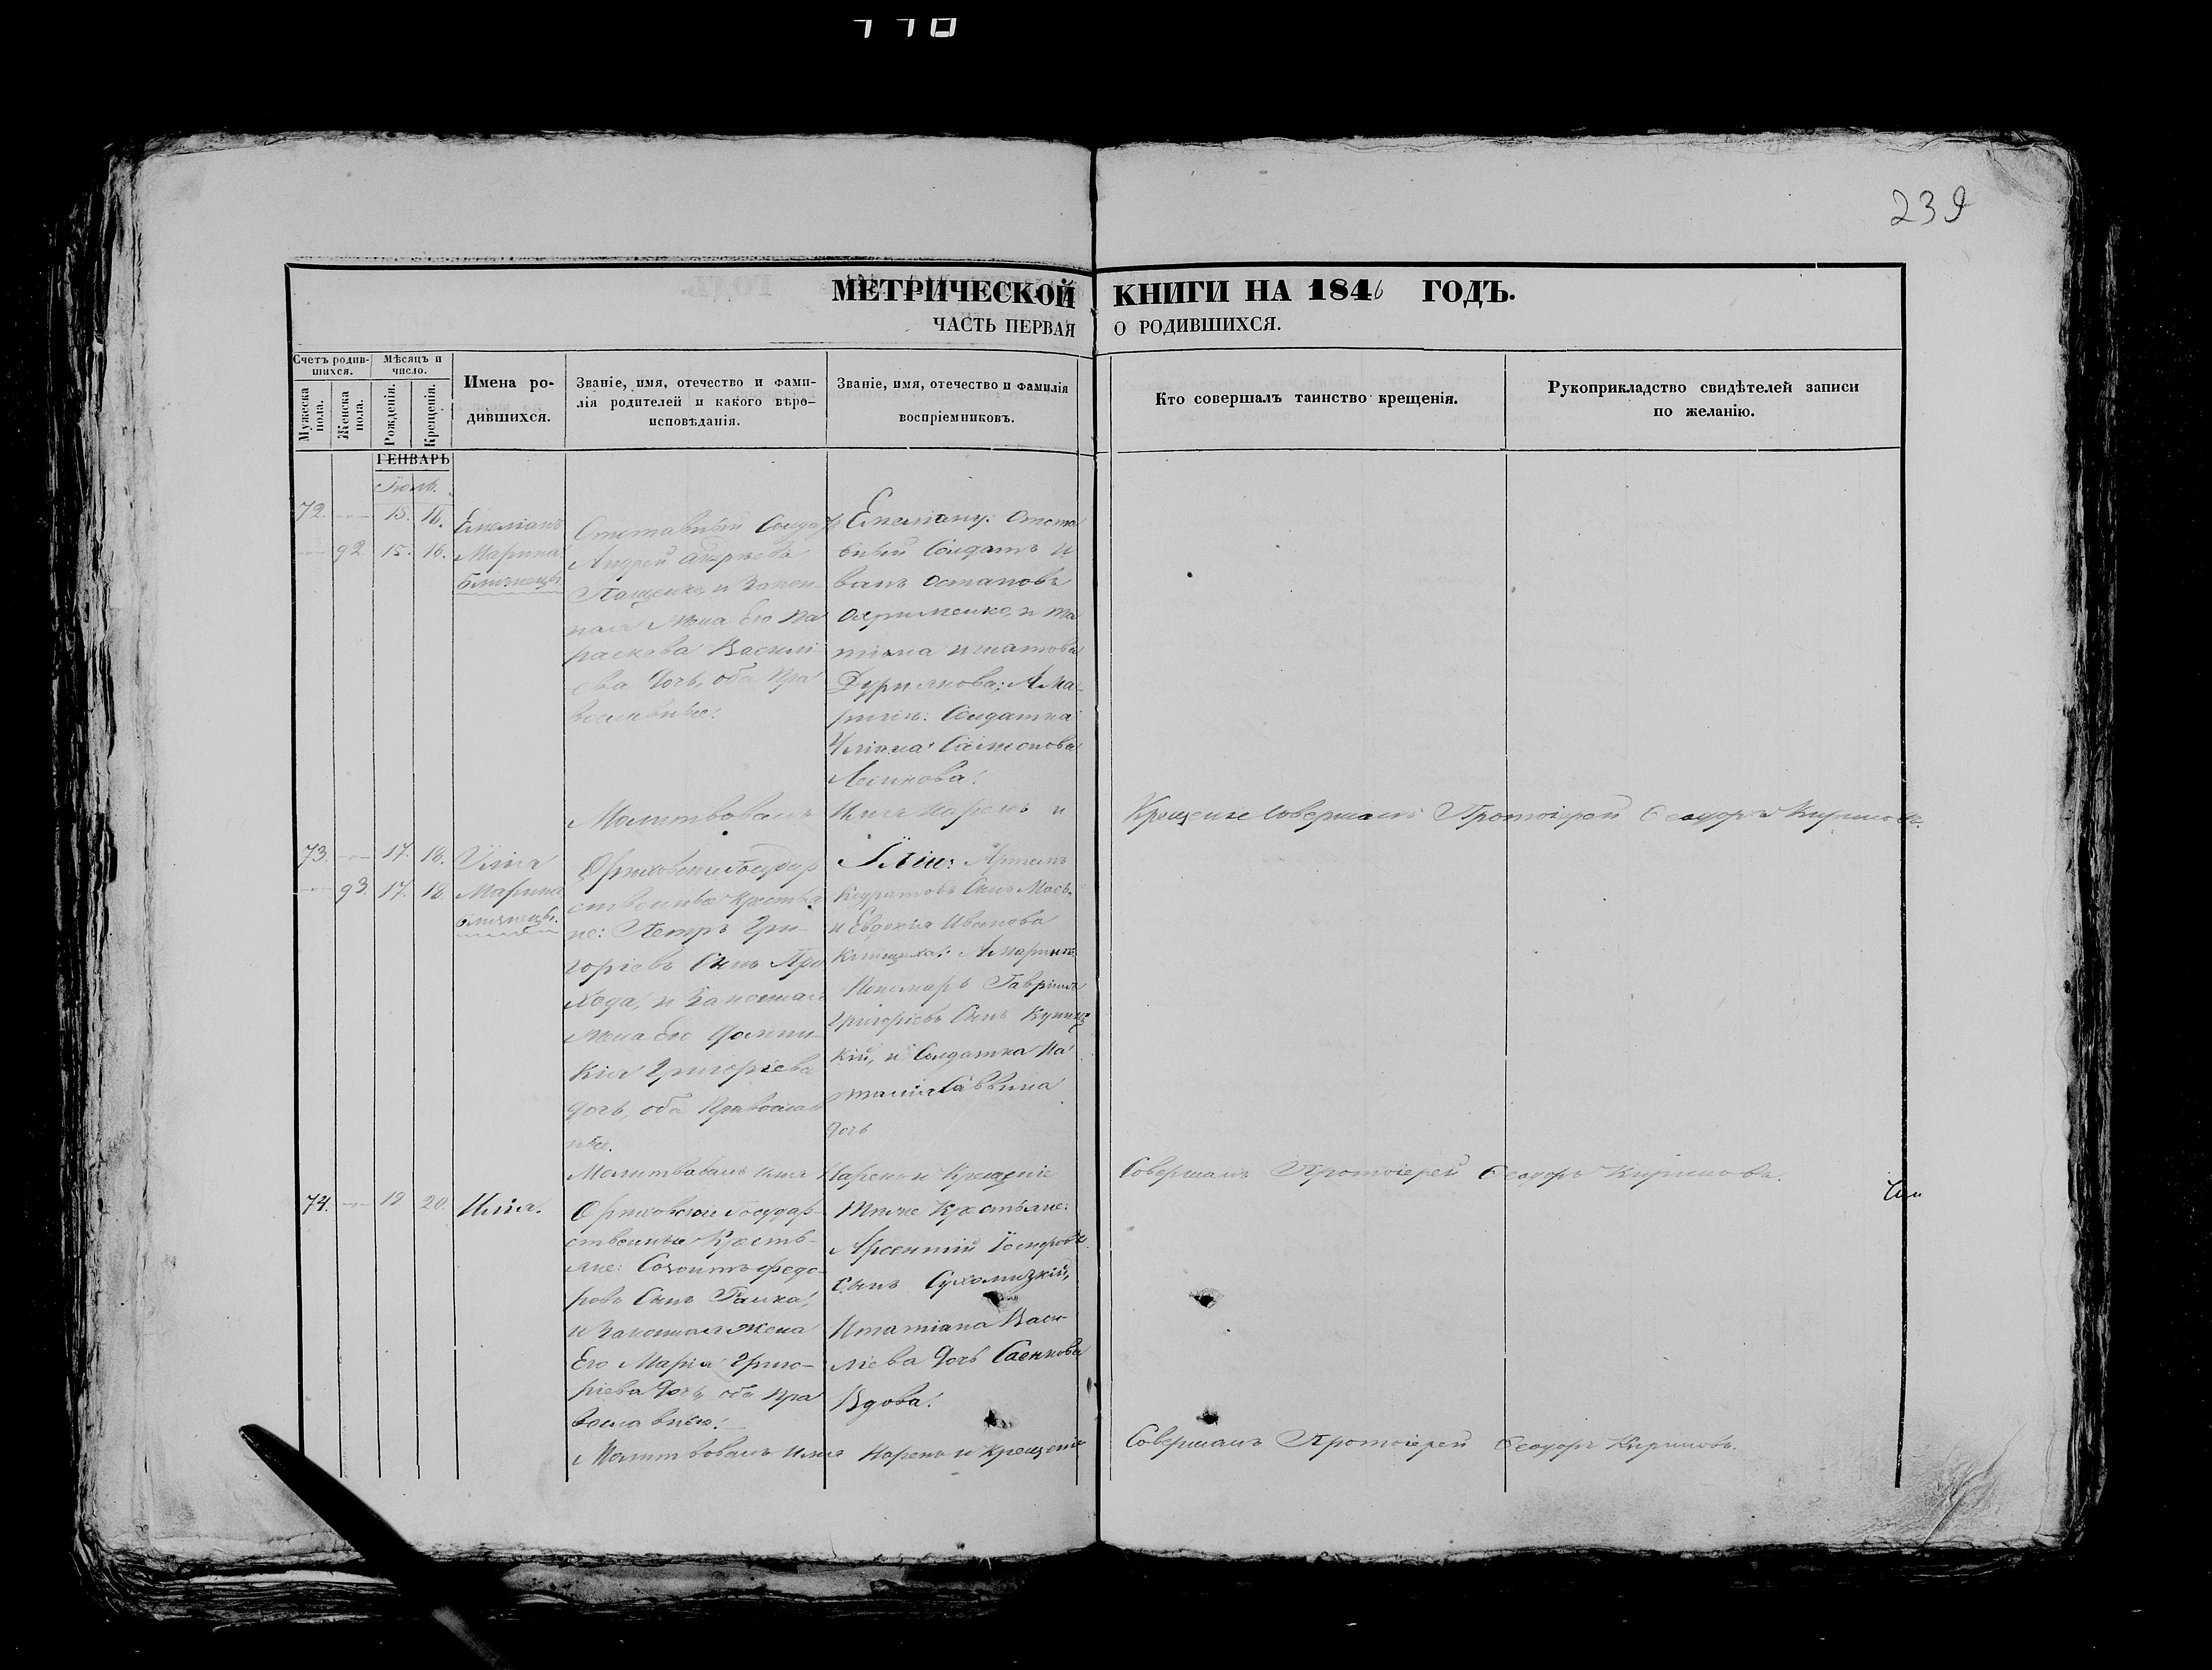 239
МЕТРИЧЕСКОЙ КНИГИ НА 1846 ГОДЪ.
ЧАСТЬ ПЕРВАЯ О РОДИВШИХСЯ.
Счетъ родив-
шихся.
Мѣсяцъ и
число.
Мужеска
пола.
Женска
пола.
Рожденія.
Крещенія.
Имена ро-
дившихся.
Званіе, имя, отечество и фами-
лія родителей и какого вѣро-
исповѣданія.
Званіе, имя, отечество и фамилія
воспріемниковъ.
Кто совершалъ таинство крещенія.
Рукоприкладство свидѣтелей записи
по желанію.
ГЕНВАРЬ
72. 15. 16. Емеліанъ
92 15. 16. Марина
близнецы.
Отставный Солдатъ
Андрей Андреева
Пащенко, и Закон-
ная Жена Его Па
раскева Василі
ева Дочь, оба Пра
вославные.
Емеліану: Отста
вный Солдатъ И
ванъ Остаповъ
Охрименко, и Та
тіана Игнатова
; А Ма-
ринѣ: Солдатка
Уліана Самсонова
Молитвовалъ Имя Нарекъ и Крещеніе Совершалъ Протоіерей Ѳеодоръ Кириловъ.
73. 17. 18. Илія
93. 17. 18. Марина
близнецы.
Орѣховские Государ
ственные Крестья
не: Петръ Гри-
горіевъ Сынъ При
хода, и Законная
Жена Его Домни-
кія Григоріева
Дочь, оба Православ
ные.
Иліи: Артемъ
Кодратовъ Сынъ
и Евдокія Иванова
А Маринѣ
Пономарь Гавріилъ
Григоріевъ Сынъ
кій, и Солдатка На
талія Саввина
Дочь
Молитвовалъ Имя Нарекъ и Крещеніе Совершалъ Протоіерей Ѳеодоръ Кириловъ.
74. 19 20. Илія.
Орѣховские Государ-
ственные Кресть-
яне: Созонтъ Федо-
ровъ Сынъ Галка,
и Законная Жена
Его Марія Григо-
ріева Дочь, оба Пра
вославные.
Тѣже Крестьяне:
Арсентій Іосифовъ
Сынъ Сухомлуцкій,
И Татіана Васи-
ліева Дочь Саенкова
Вдова.
Молитвовалъ Имя Нарекъ и Крещеніе Совершалъ Протоіерей Ѳеодоръ Кириловъ.